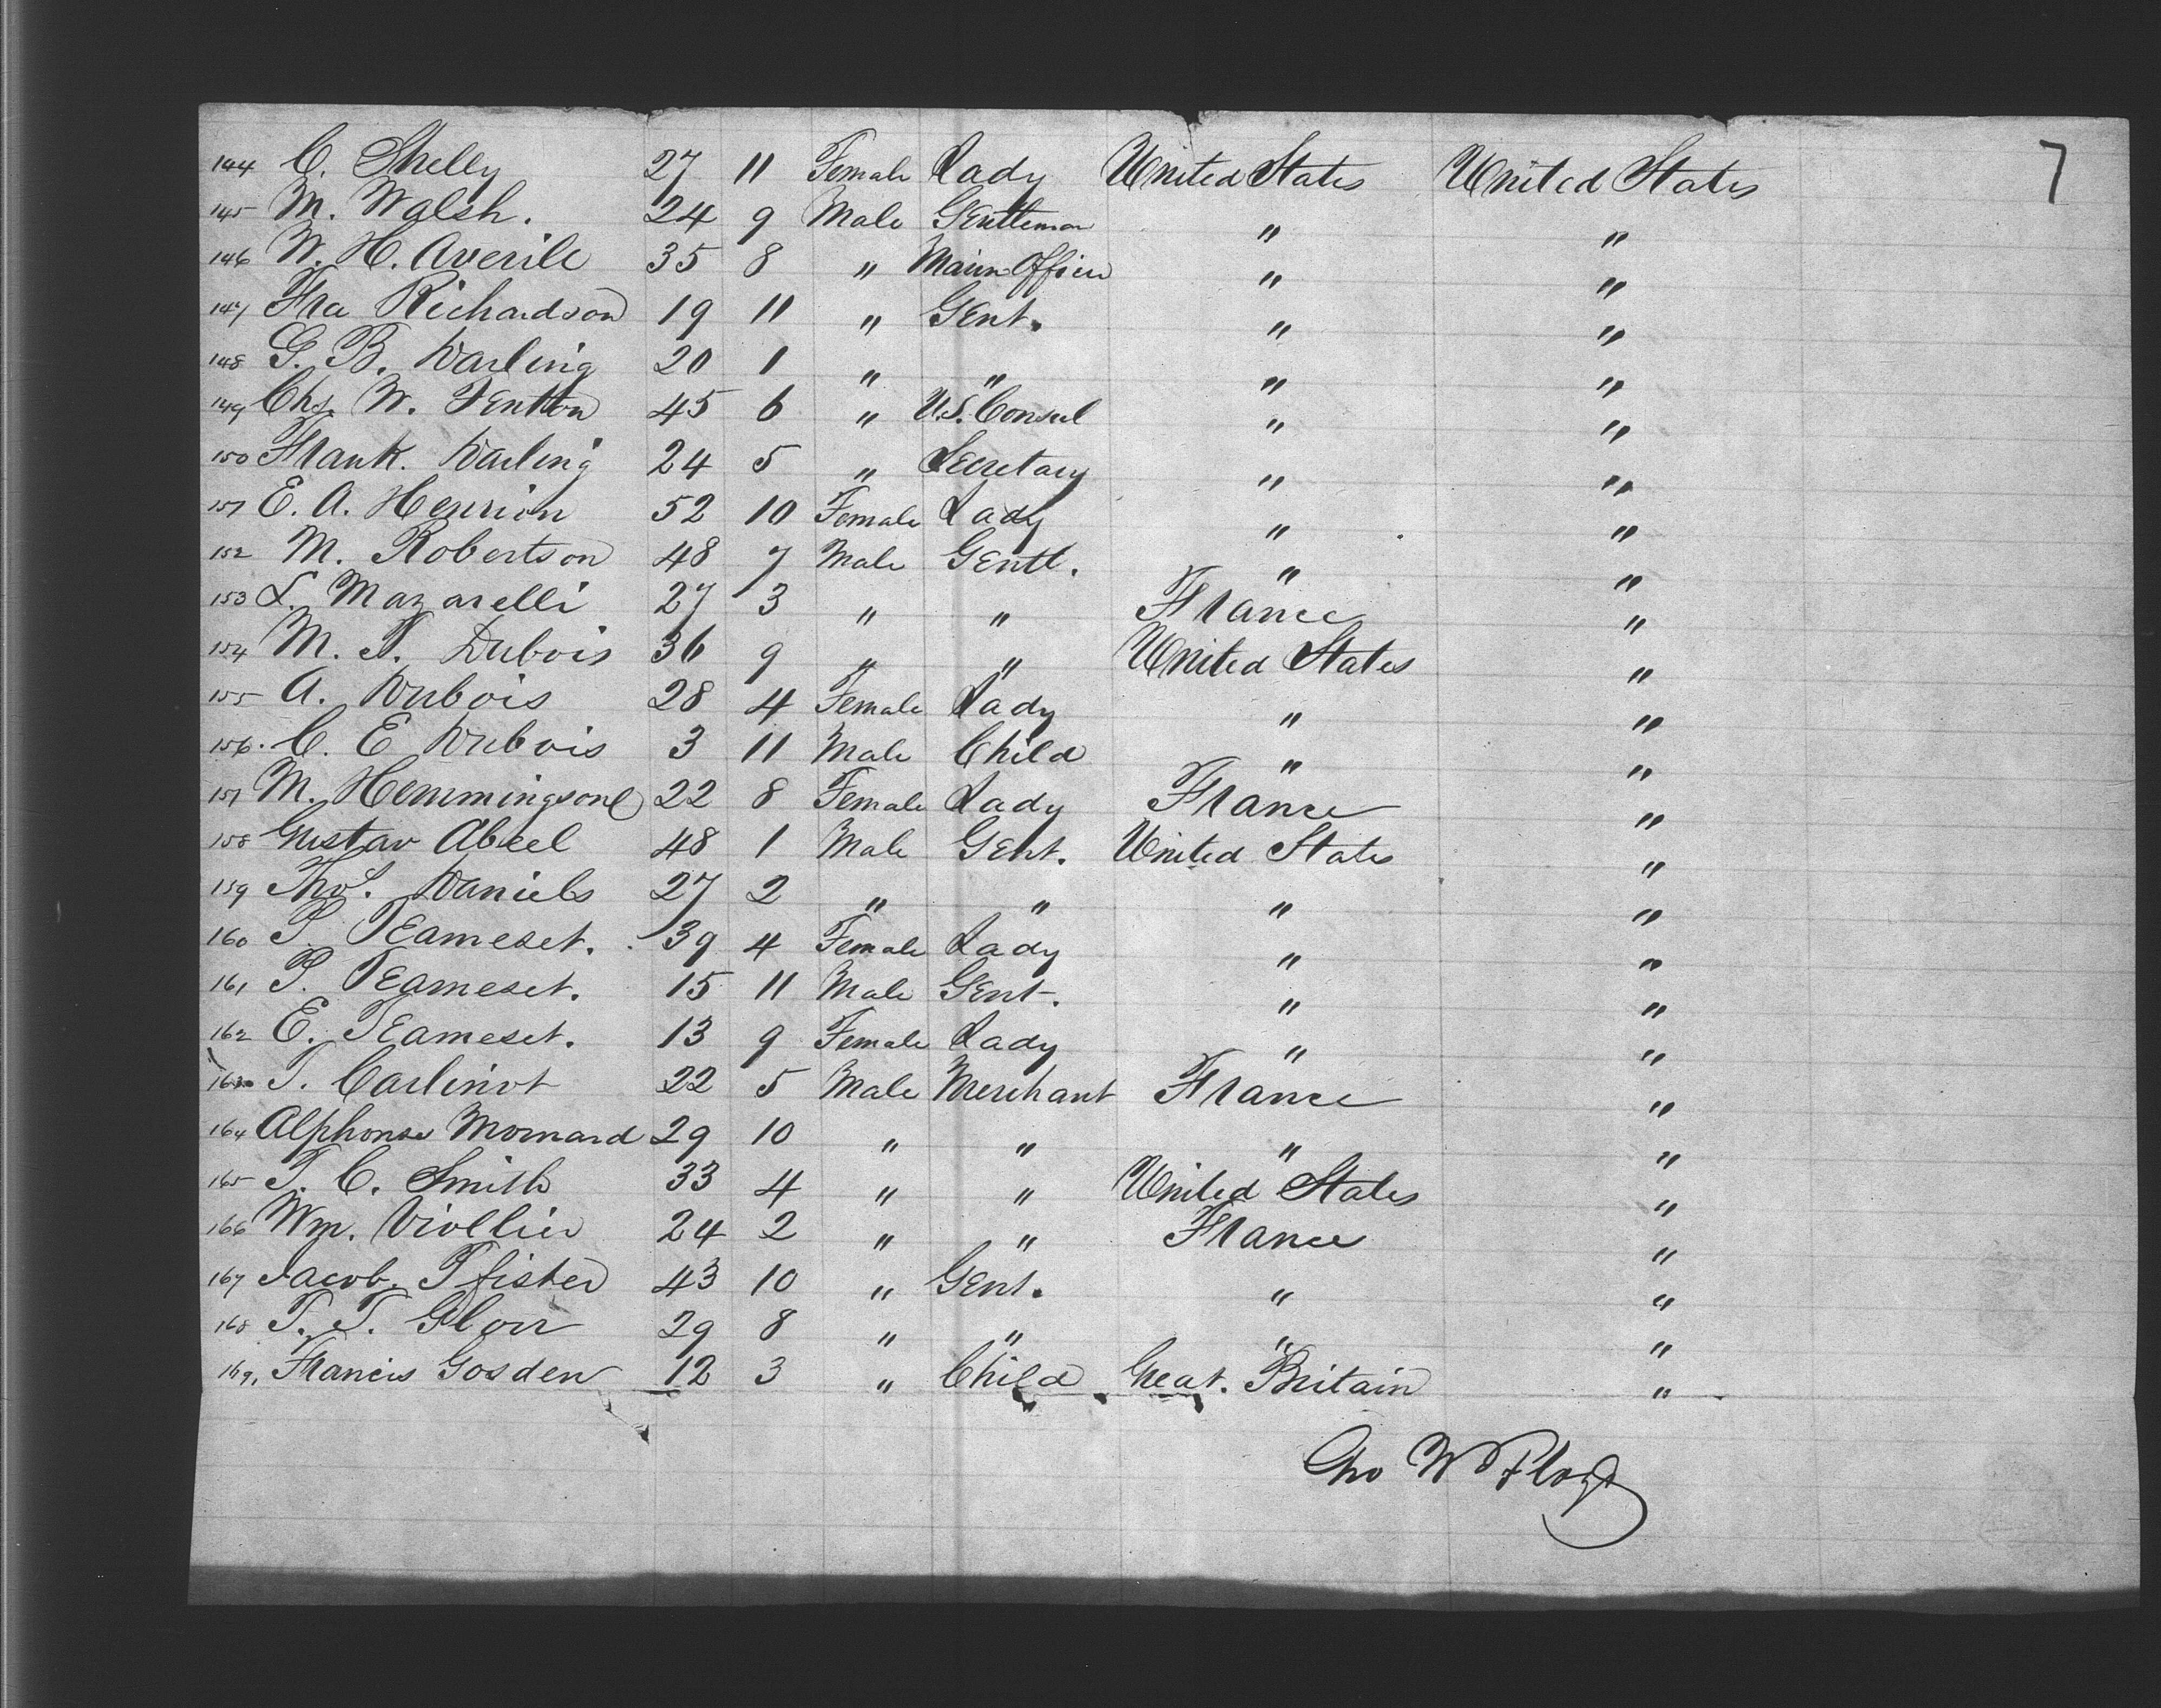 7
144 C. Shelly 27 11 Female Lady United States United States
145 M. Walsh. 24 9 Male Gentleman " "
146 W. H. Averill 35 8 " Marin Officer " "
147 Fra Richardson 19 11 " Gent. " "
148 G. B. Darling 20 1 " " " "
149 Chs. W. Fentton 45 6 " U.S. Consul " "
150 Frank. Darling 24 5 " Secretary " "
151 E. A. Henrion 52 10 Female Lady " "
152 M. Robertson 48 7 Male Gentl. " "
153 L. Mazarelli 27 3 " " France "
154 M. T. Dubois 36 9 " " United States "
155 A. Dubois 28 4 Female Lady " "
156. C. E Dubois 3 11 Male Child " "
157 M. Hemmingsone 22 8 Female Lady France "
158 Gustav Abeel 48 1 Male Gent. United States "
159 Thos. Daniels 27 2 " " " "
160 P. Teameset. 39 4 Female Lady " "
161 P. Teameset. 15 11 Male Gent. " "
162 E. Teameset. 13 9 Female Lady " "
163 T. Carlinot 22 5 Male Merchant France "
164 Alphonse Mornard 29 10 " " " "
165 T. C. Smith 33 4 " " United States "
166 Wm. Viollier 24 2 " " France "
167 Jacob. Pfister 43 10 " Gent. " "
168 T. T. Glorr 29 8 " " " "
169. Francis Gosden 12 3 " Child Great. Britain "
W Floyd